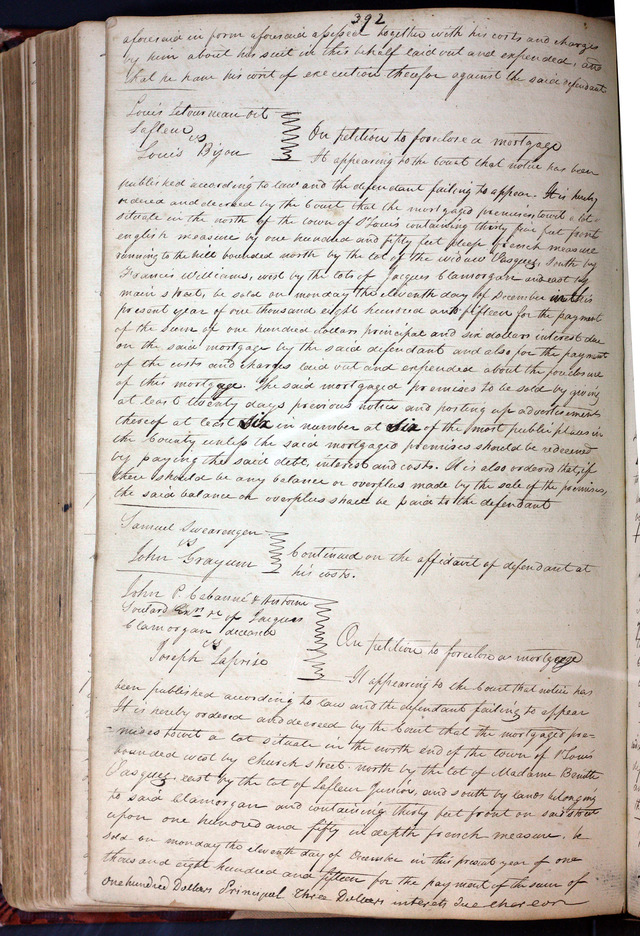 392
aforesaid in form aforesaid assessed together with his costs and charges
by him about his suit in this behalf laid out and expended, and
that he have his writ of execution therefor against the said defendant
Louis Letourneau dit
Lafleur
vs
Louis Bijou
On petition to foreclose a mortgage
It appearing to the Court that notice has been
published according to law and the defendant failing to appear. It is hereby
ordered and decreed by the Court that the mortgaged premises, towit a lot
situate in the north of the town of St Louis containing thirty five feet front
english measure by one hundred and fifty feet deep french measure
running to the hill bounded north by the lot of the widow Vasquez, South by
Francis Williams, west by the lots of Jacques Clamorgan and east by
main street, be sold on monday the eleventh day of December in this
present year of one thousand eight hundred and fifteen for the payment
of the sum of one hundred dollars principal and six dollars interest due
on the said mortgage by the said defendant and also for the payment
of the costs and charges laid out and expended about the foreclosure
of this mortgage. The said mortgaged premises to be sold by giving
at least twenty days previous notice and posting up advertisements
thereof at least six in number at six of the most public places in
the County unless the said mortgaged premises should be redeemed
by paying the said debt, interest and costs. It is also ordered that, if
there should be any balance or overplus made by the sale of the premises,
the said balance or overplus shall be paid to the defendant
Samuel Swearengen
vs
John Grayum
Continued on the affidavit of defendant at
his costs.
John P. Cabanné & Antoine
Soulard Exrs &c of Jacques
Clamorgan deceased
vs
Joseph Laprise
On petition to foreclose a mortgage
It appearing to the Court that notice has
been published according to law and the defendant failing to appear
It is hereby ordered and decreed by the Court that the mortgaged pre-
-mises towit a lot situate in the north end of the town of St Louis
bounded west by Church street. north by the lot of Madame Benitte
Vasquez. east by the lot of Lafleur Junior, and south by lands belonging
to said Clamorgan and containing thirty feet front on said street
upon one hundred and fifty in depth french measure. be
sold on monday the eleventh day of December in this present year of one
thousand eight hundred and fifteen for the payment of the sum of
One hundred Dollars Principal three Dollars interests due thereon